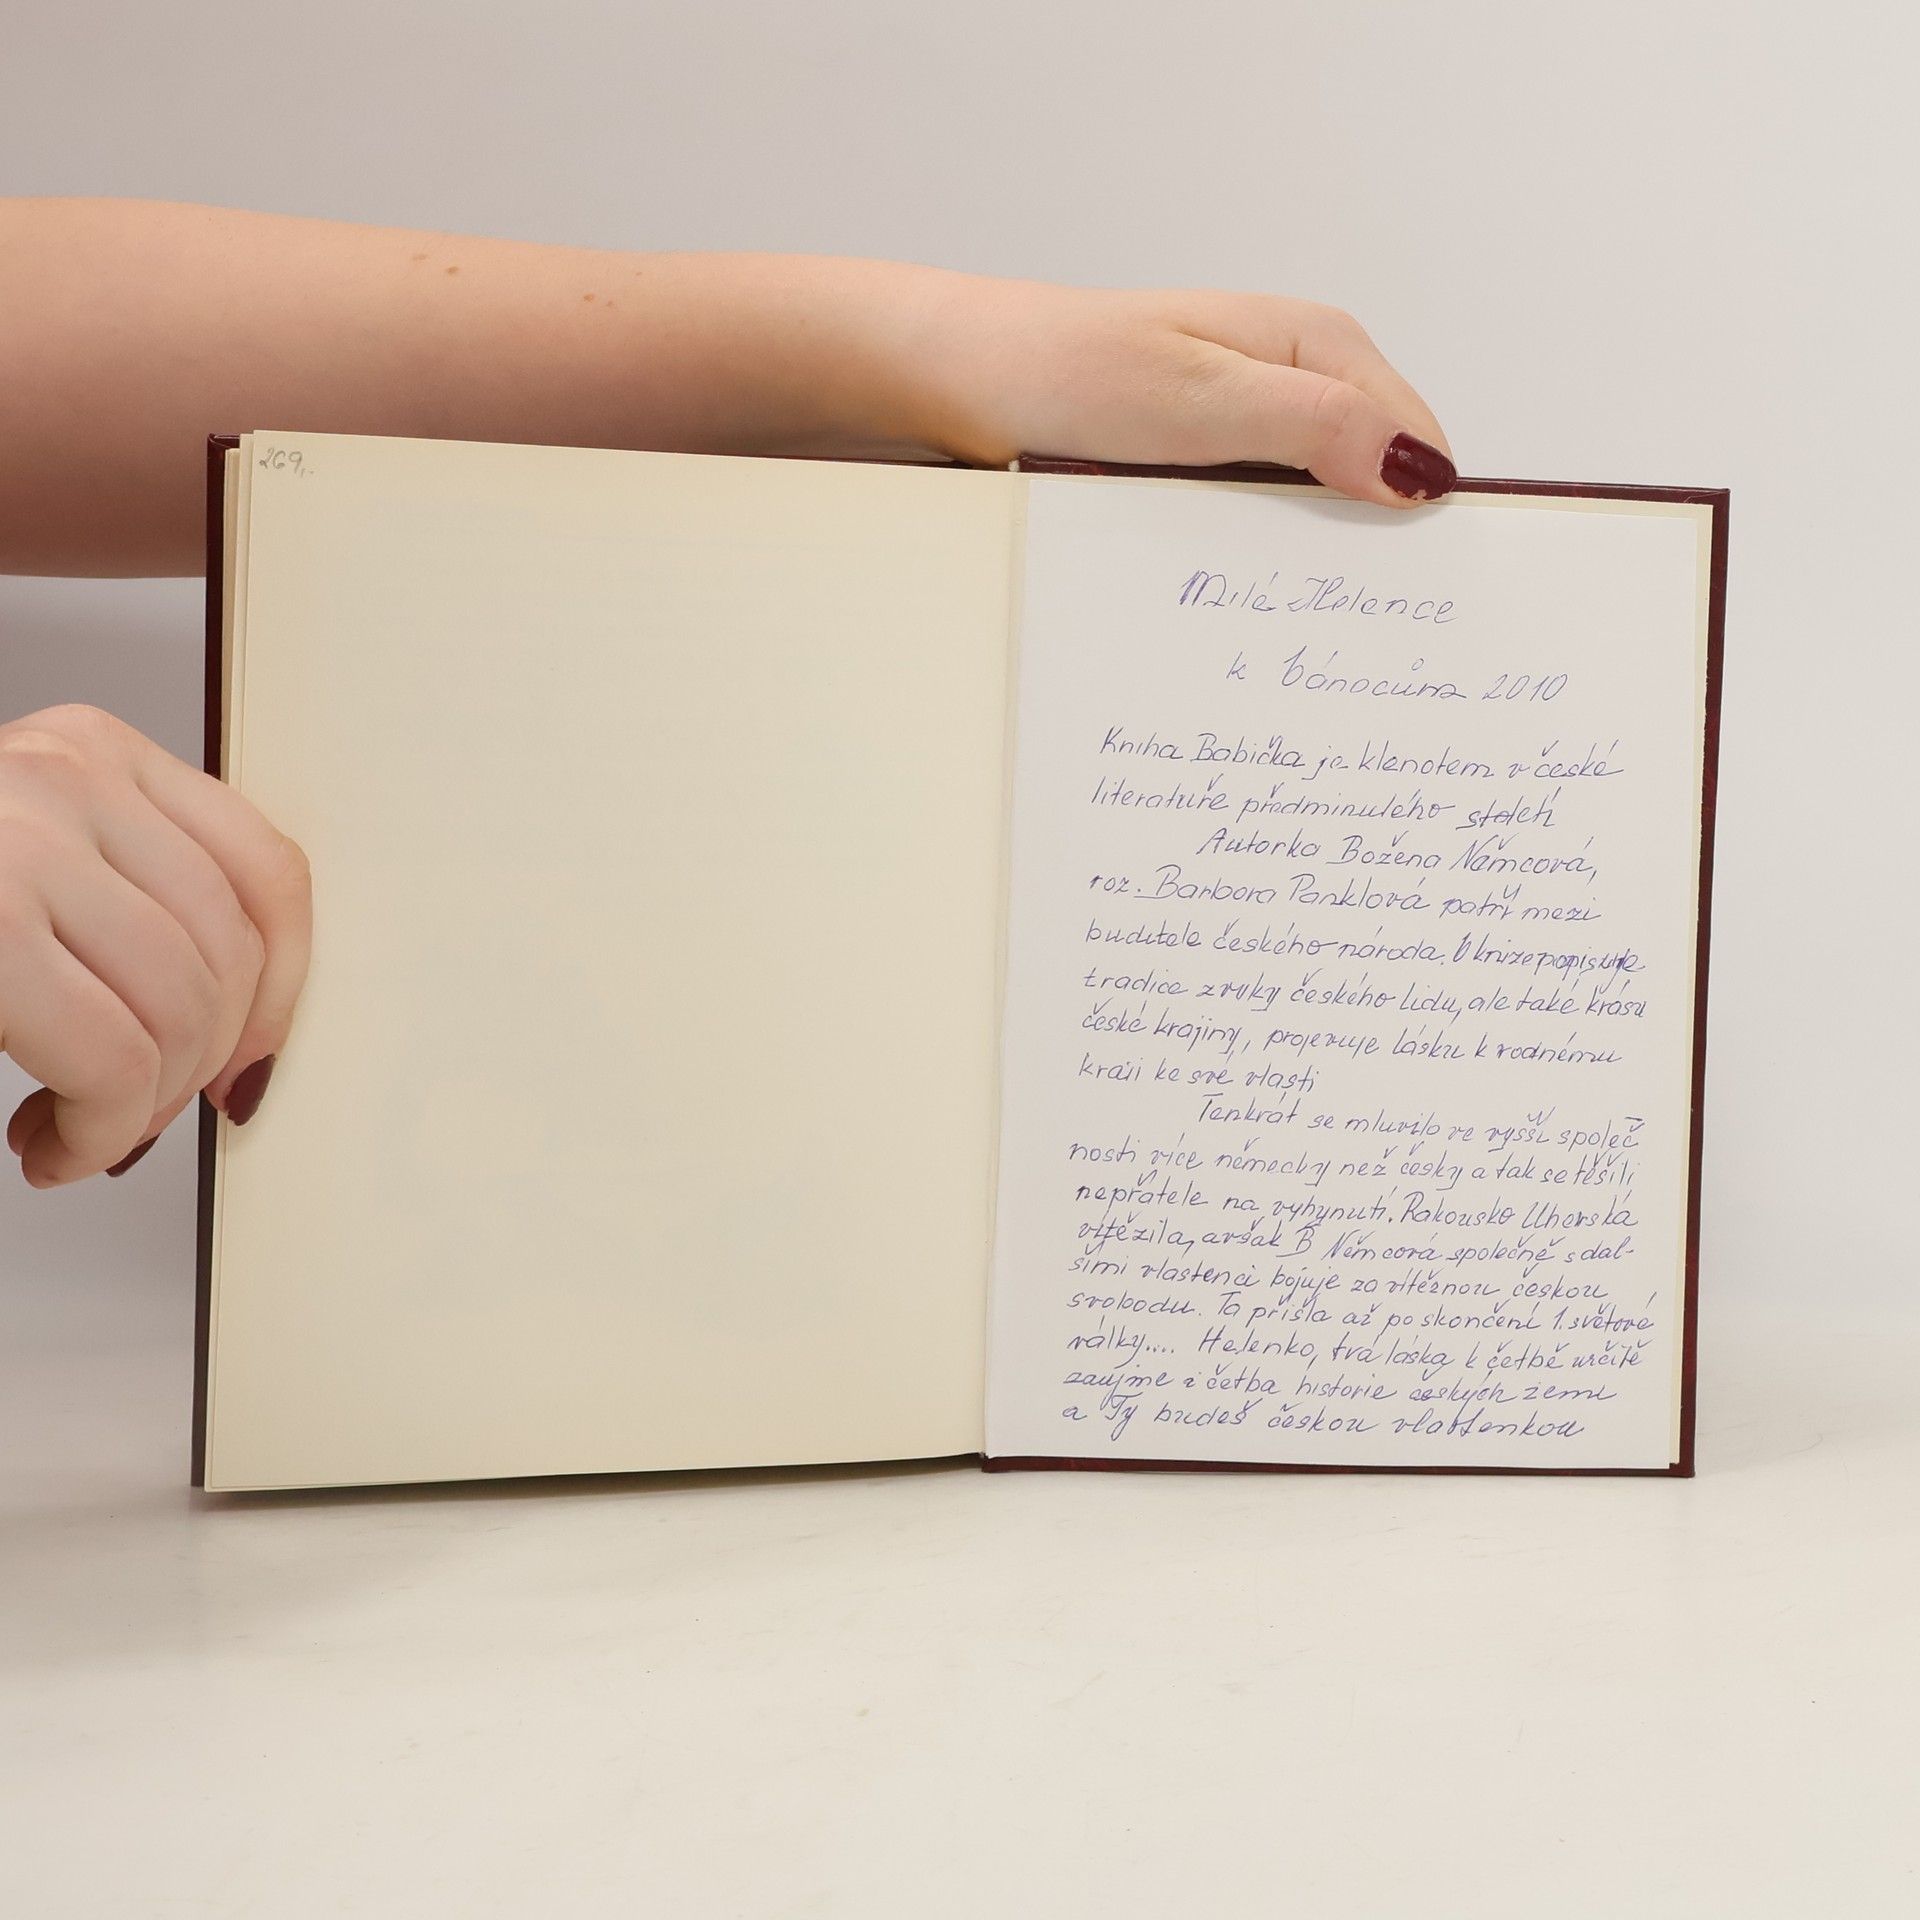 269,-
Milé Helence
k Vánocům 2010
Kniha Babička je klenotem v české
literatuře předminulého století
Autorka Božena Němcová,
roz. Barbora Panklová patří mezi
buditele českého národa. V knize popisuje
tradice zvyky českého lidu, ale také krásu
české krajiny, projevuje lásku k rodnému
kraji ke své vlasti
Tenkrát se mluvilo ve vyšší společ
nosti více německy než česky a tak se těšili
nepřátele na vyhynutí. Rakousko Uherská
vítězila, avšak B Němcová společně s dal-
šími vlastenci bojuje za vítěznou českou
svobodu. Ta přišla až po skončení 1. světové
války.... Helenko, tvá láska k četbě určitě
zaujme i četba historie českých zemi
a Ty budeš českou vlastenkou